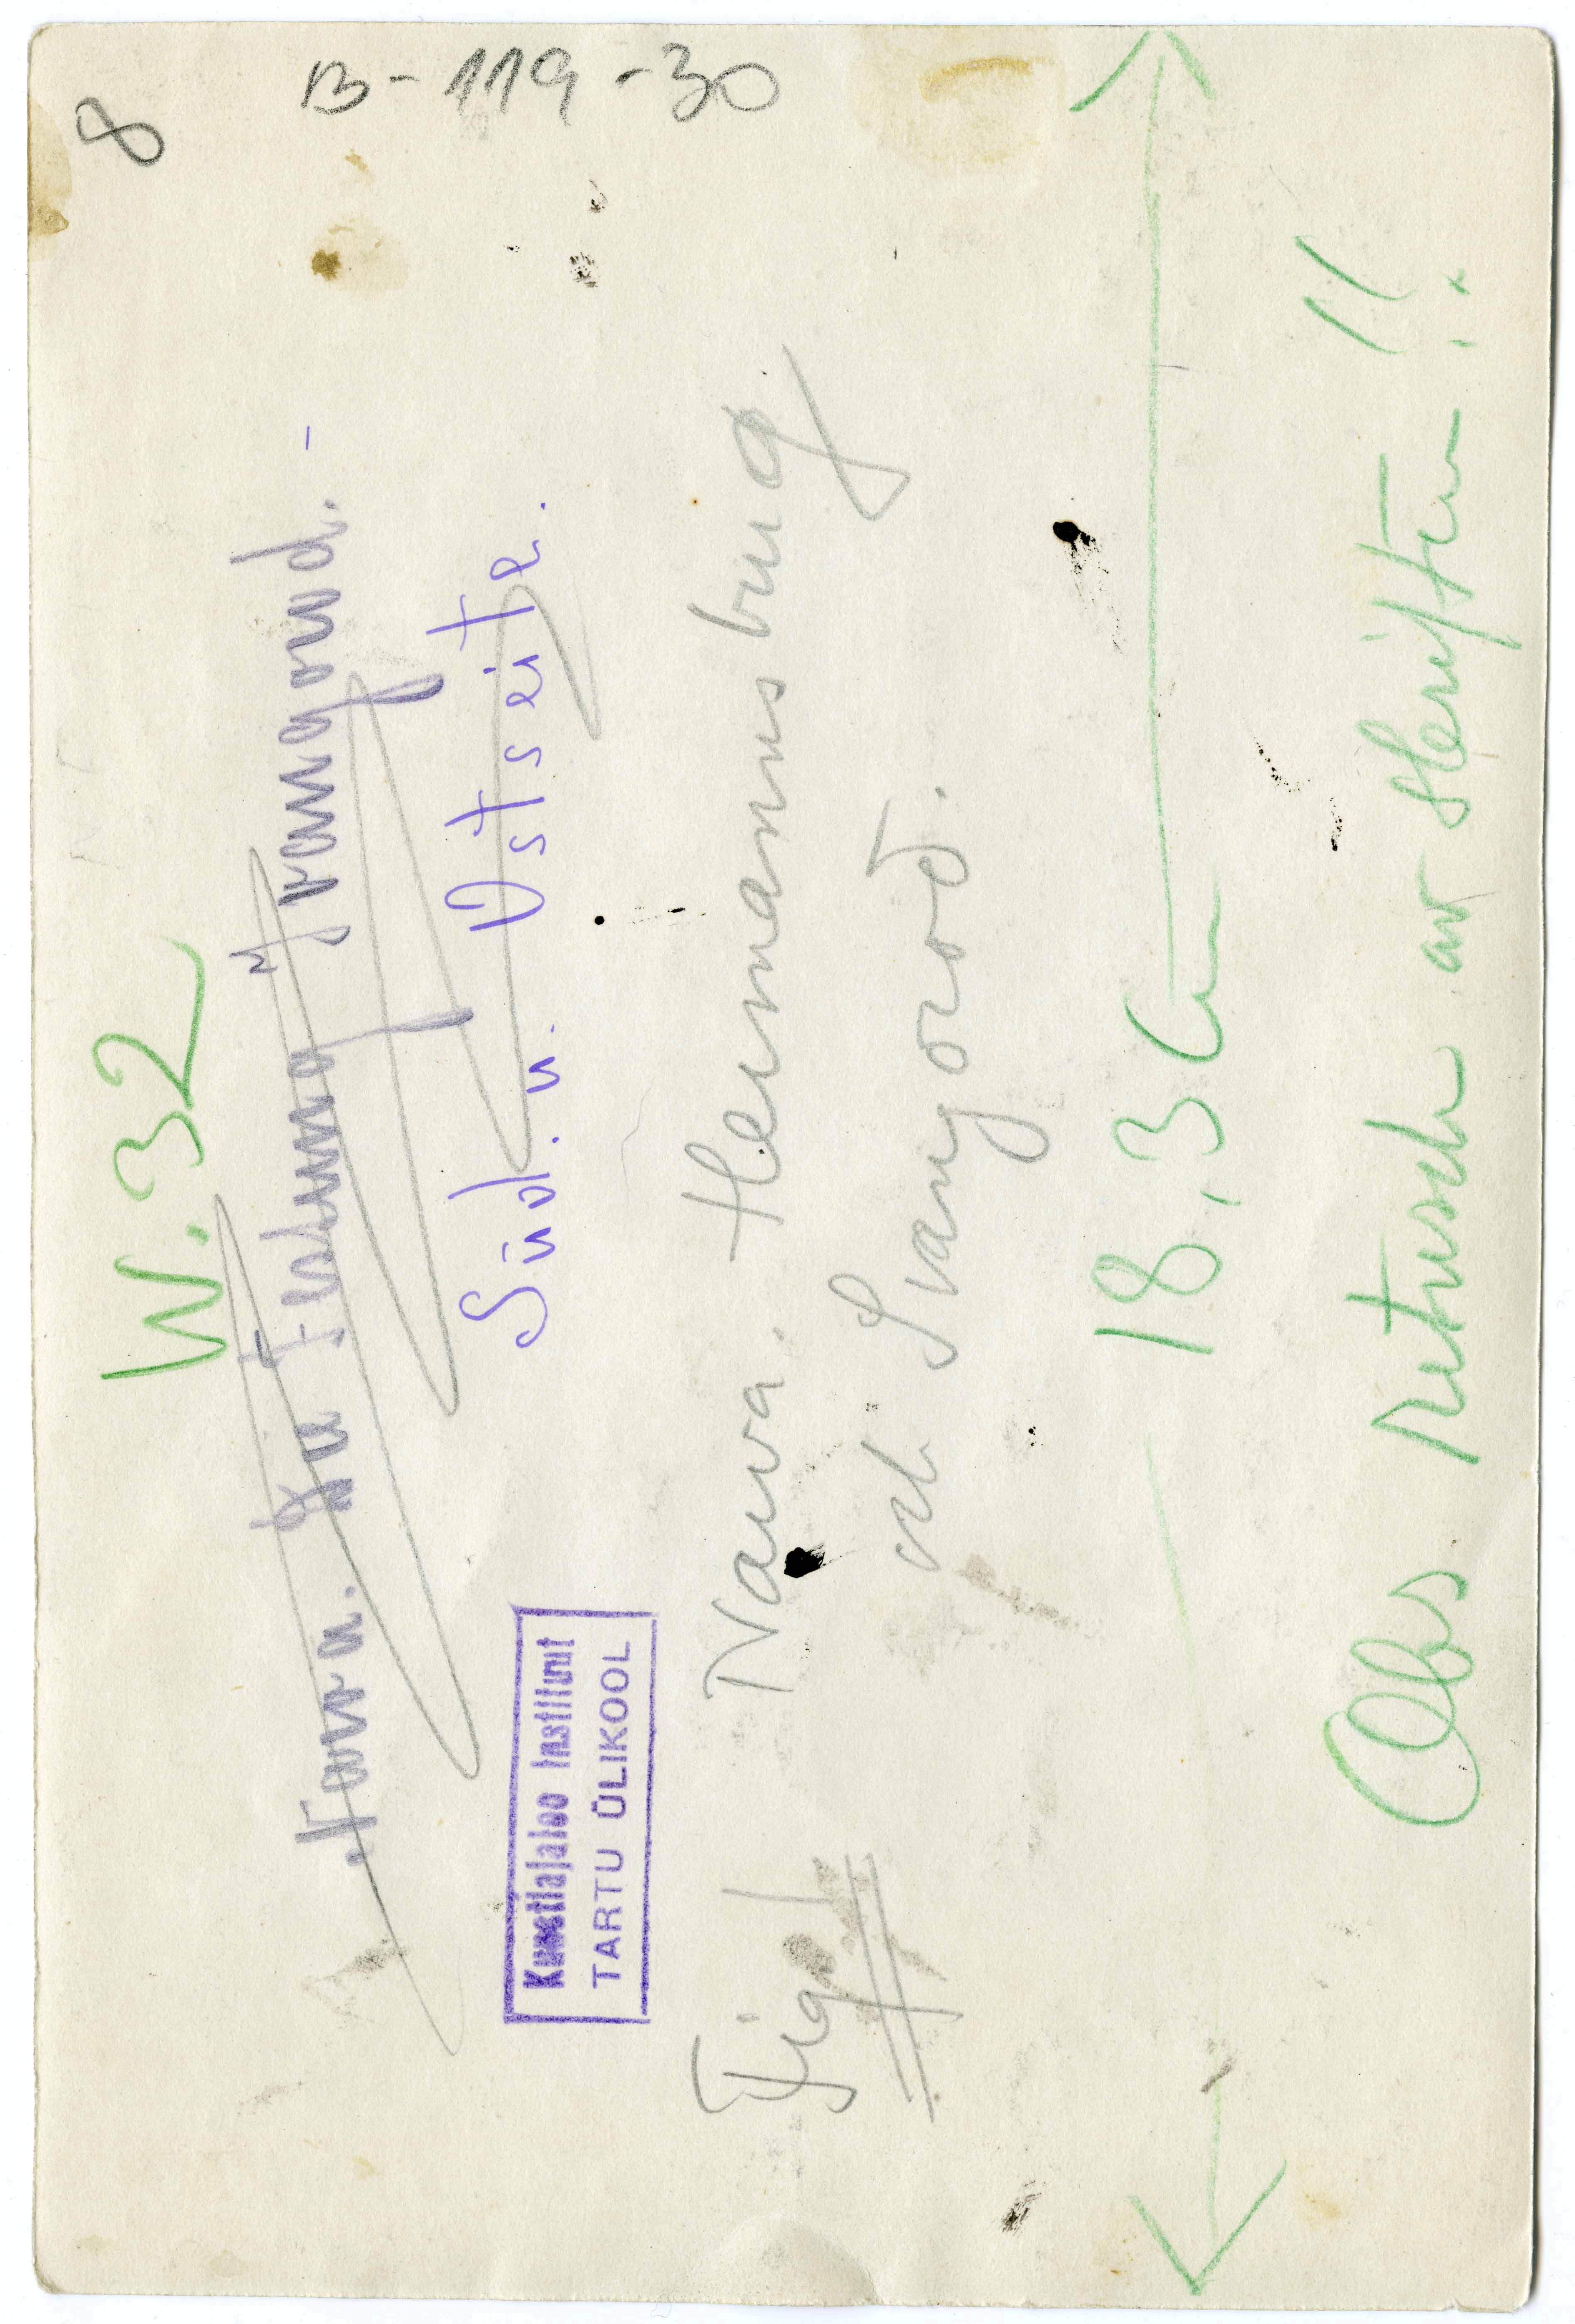 8
B-119-30
W. 32
Narva. Die Festung Ivangorod. -
Süd. u. Ostseite.
Kunstiajaloo Instituut
TARTU ÜLIKOOL
Fig 1 Narva. Hermannsburg
och Ivangorod.
18,3 cm
Obs retusch av skriften!!